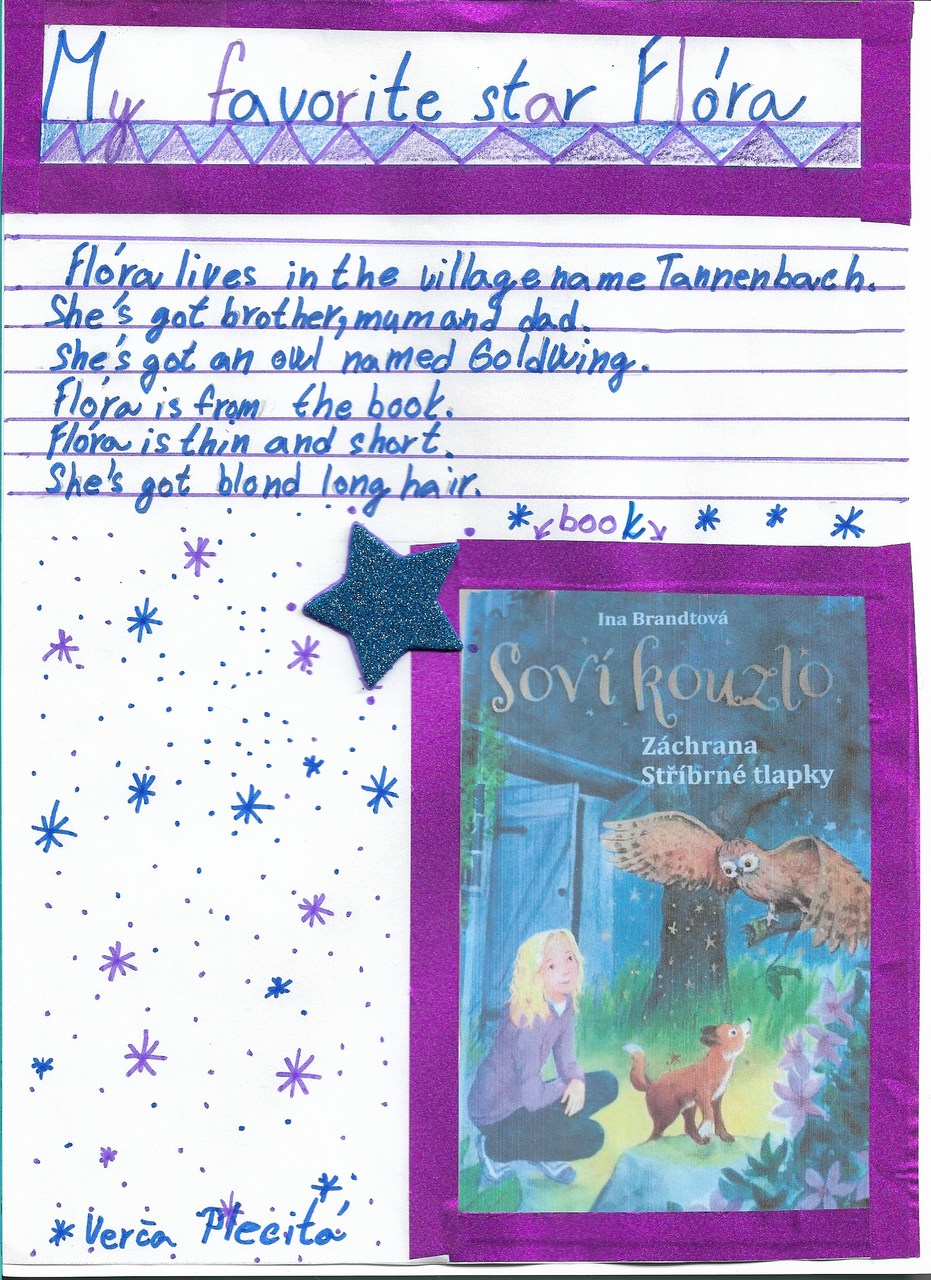 My favorite star Flóra
Flóra lives in the village name Tannenbach.
She's got brother, mum and dad.
She's got an owl named Goldwing.
Flóra is from the book.
Flóra is thin and short.
She's got blond long hair.
book
Ina Brandtová
Soví kouzlo
Záchrana
Stříbrné tlapky
Verča Plecitá